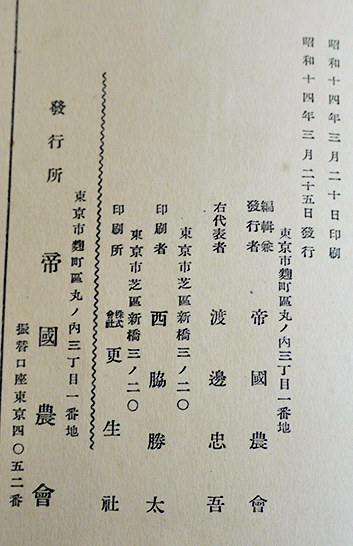 昭和十四年三月二十日印刷
昭和十四年三月二十五日發行
東京市麴町區丸ノ內三丁目一番地
編輯兼發行者 帝國農會
右代表者 渡邊忠吾
東京市芝區新橋三ノ二〇
印刷者 西脇勝太
東京市芝區新橋三ノ二〇
印刷所 株式會社 更生社
東京市麴町區丸ノ內三丁目一番地
發行所 帝國農會
振替口座東京四〇五二番